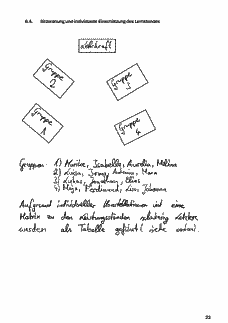 6.4. Sitzordnung und individuelle Einschätzung des Lernstandes
Lehrkraft
Gruppe 2
Gruppe 3
Gruppe 1
Gruppe 4
Gruppen: 1) Isabelle, Aurelia, Milena
2) Luisa, Mara
3) Lukas, Jonathan, Elias
4) Maja, Ferdinand, Lisa, Johanna
Aufgrund individueller Konstellationen ist eine
Matrix zu den Leistungsständen
werden als Tabelle geführt (siehe unten).
23